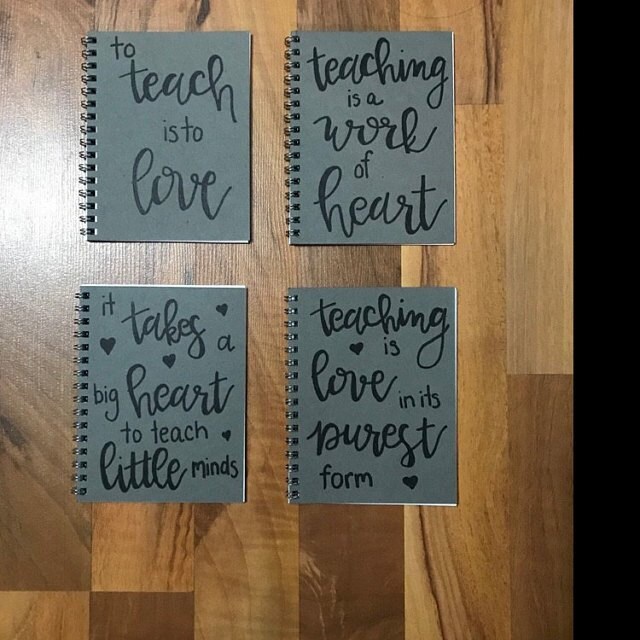 to
teach
is to
love
teaching
is a
work
of
heart
it
takes
a
big heart
to teach
little minds
teaching
is
love
in its
purest
form